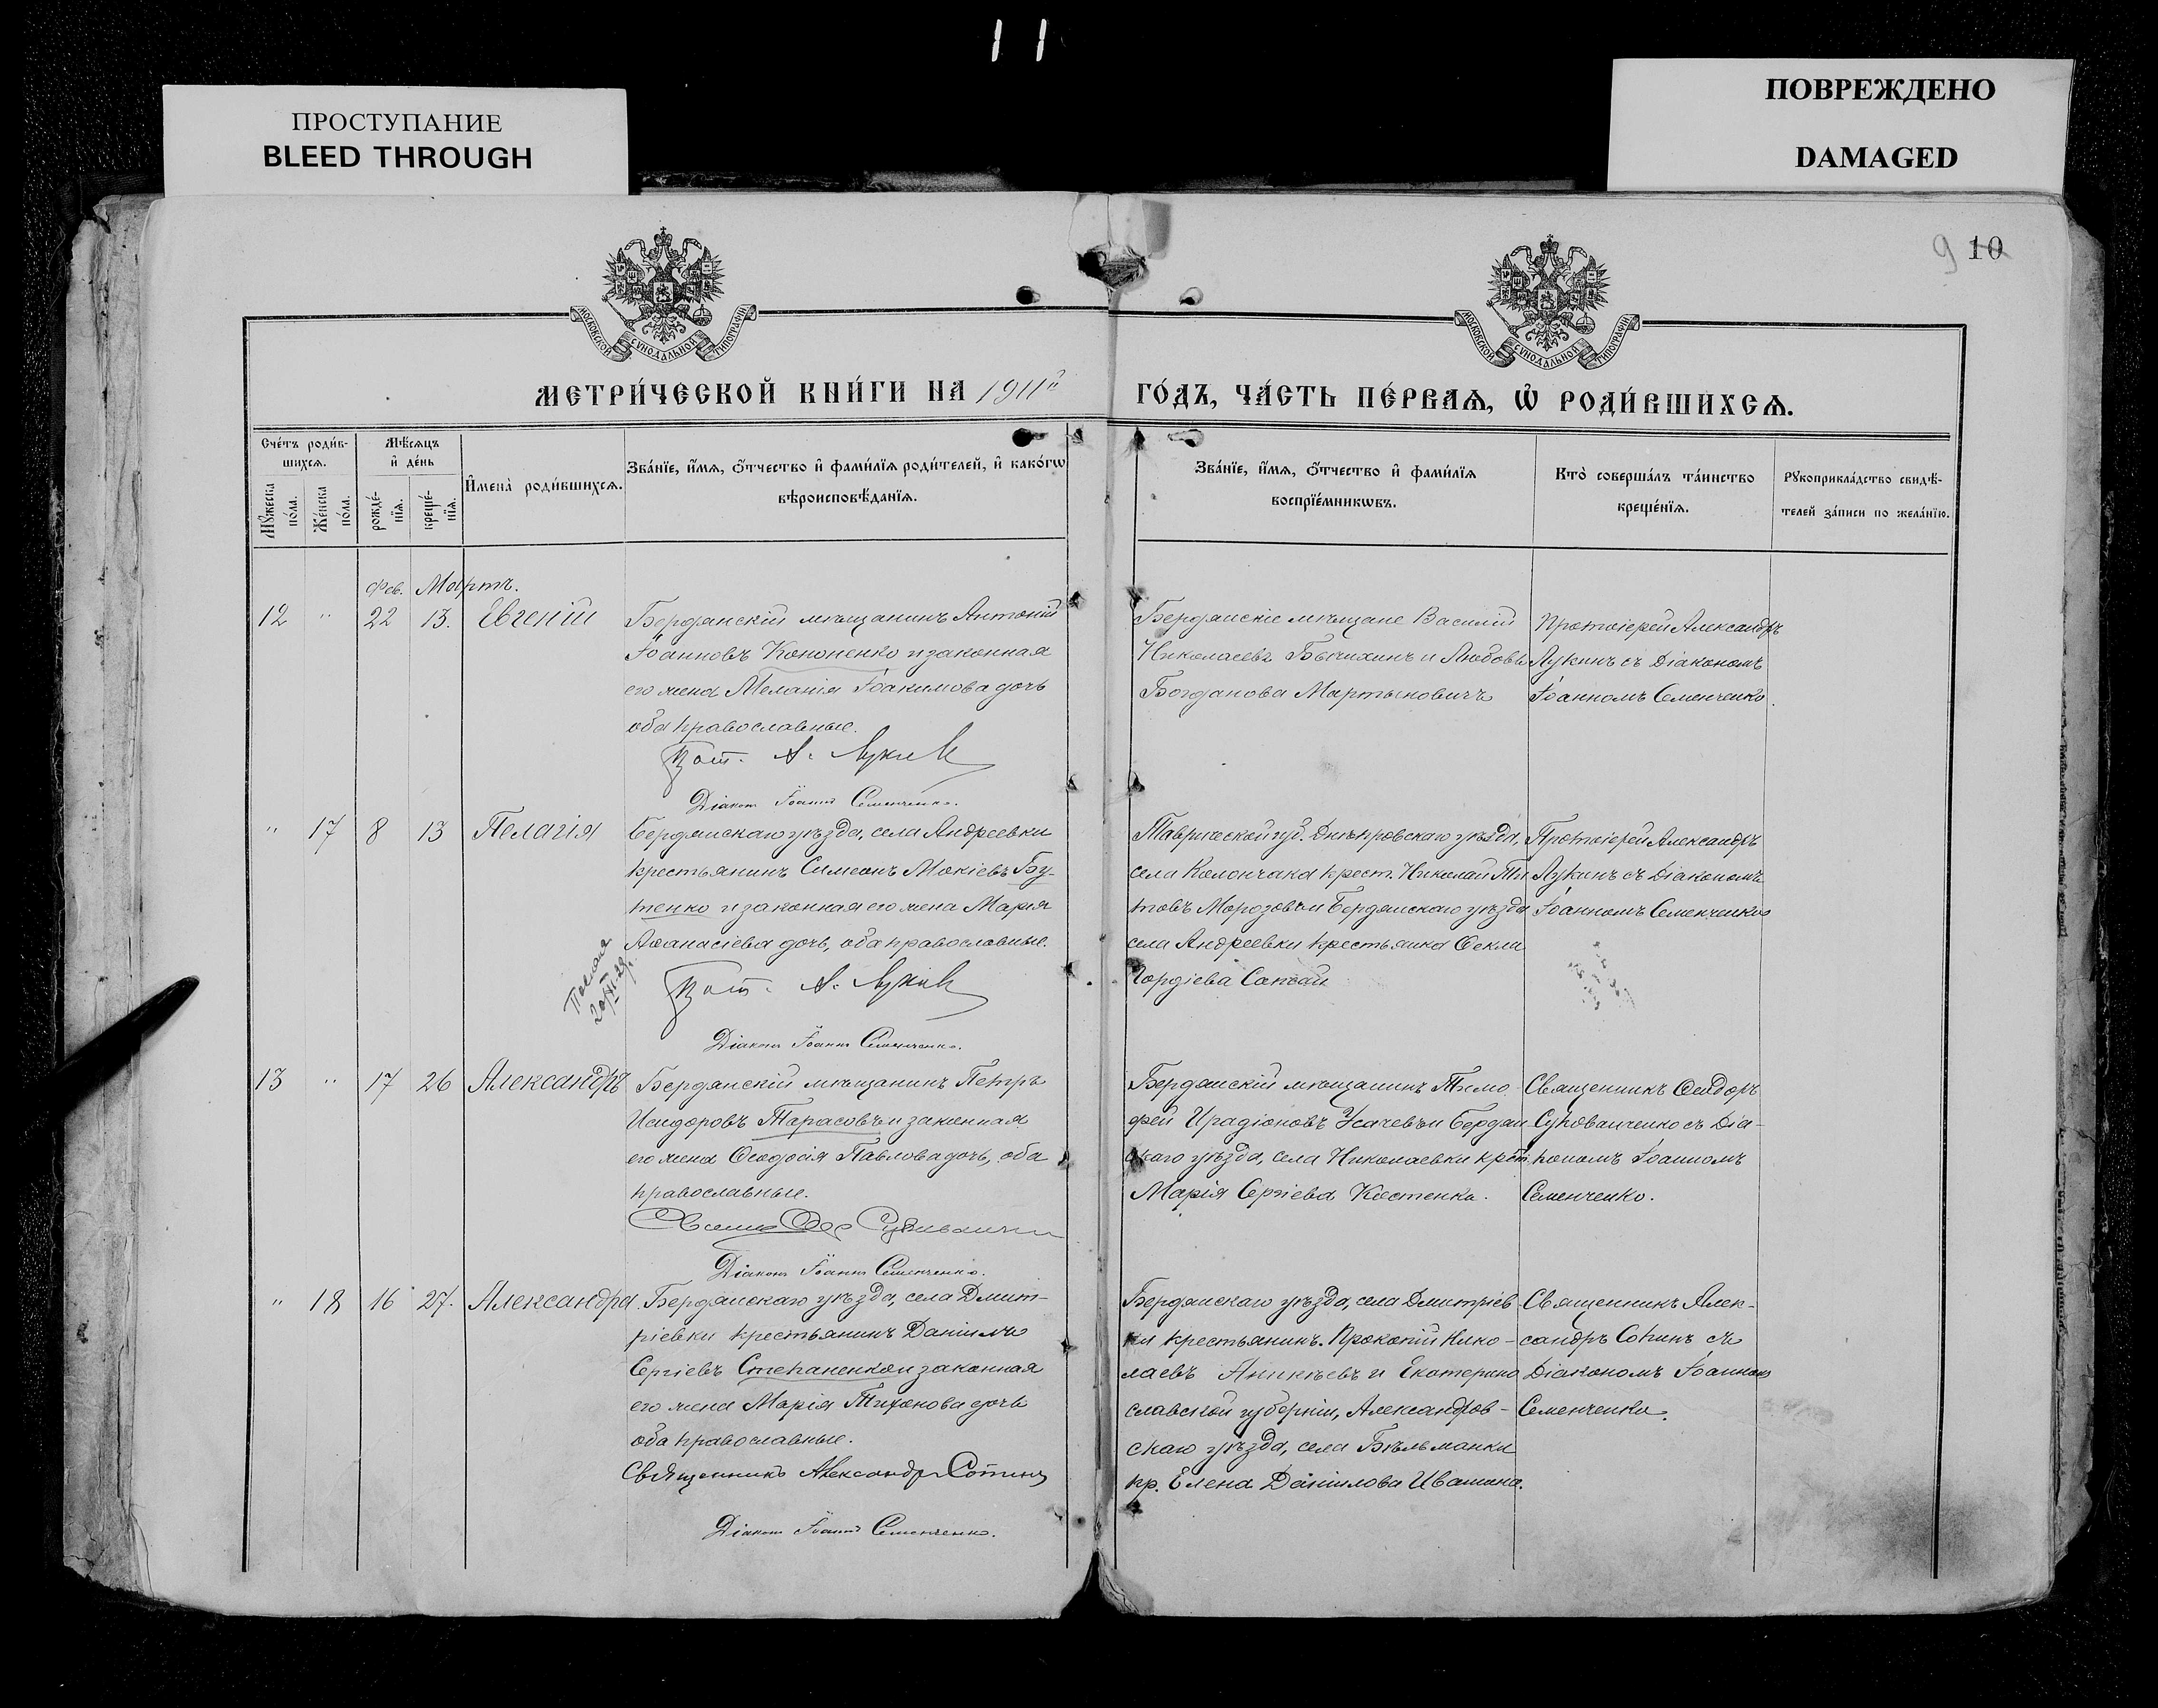 11
ПРОСТУПАНИЕ
BLEED THROUGH
ПОВРЕЖДЕНО
DAMAGED
9 10
МОСКОВСКОЙ СУНОДАЛЬНОЙ ТИПОГРАФІИ
МОСКОВСКОЙ СУНОДАЛЬНОЙ ТИПОГРАФІИ
МЕТРИ́ЧЕСКОЙ КНИ́ГИ НА 1911й
ГО́ДЪ, ЧА́СТЬ ПЕ́РВАѦ, Ѡ҆ РОДИ́ВШИХСѦ.
Сче́тъ роди́в-
шихсѧ.
Мѣ́сѧцъ
и҆ де́нь
Мꙋ́жеска
по́ла.
Же́нска
по́ла.
рожде́-
нїѧ.
креще́-
нїѧ.
И҆мена̀ роди́вшихсѧ.
Зва́нїе, и҆́мѧ, ѻ҆́тчество и҆ фами́лїѧ роди́телей, и҆ како́гѡ
вѣроисповѣ́данїѧ.
Зва́нїе, и҆́мѧ, ѻ҆́тчество и҆ фами́лїѧ
воспрїе́мникѡвъ.
Кто̀ соверша́лъ та́инство
креще́нїѧ.
Рꙋкоприкла́дство свидѣ́-
телей за́писи по жела́нїю.
Фев. Мартъ.
12 " 22 13. Евгеній
Бердянскій мѣщанинъ Антоній
Іоанновъ Кононенко и законная
его жена Меланія Іоакимова дочь
оба православные.
Прот. А. Лукин
Діаконъ Іоаннъ Семенченко.
Бердянскіе мѣщане Василій
Николаевъ Бычихинъ и Любовь
Богданова Мартыновичъ
Протоіерей Александръ
Лукинъ съ Діакономъ
Іоанномъ Семенченко.
" 17 8 13 Пелагія
Бердянскаго уѣзда, села Андреевки
крестьянинъ Симеонъ Мокіевъ Бу-
тенко и законная его жена Марія
Аѳанасіева дочь, оба православные.
Прот. А. Лукин
Діаконъ Іоаннъ Семенченко.
Таврической губ. Днѣпровскаго уѣзда,
села Колончака крест. Николай Ти
товъ Морозовъ и Бердянскаго уѣзда
села Андреевки крестьянка Ѳекла
Гордіева
Протоіерей Александръ
Лукинъ съ Діакономъ
Іоанномъ Семенченко
13 " 17 26 Александръ
Бердянскій мѣщанинъ Петръ
Исидоровъ Тарасовъ и законная
его жена Ѳеодосія Павлова дочь, оба
православные.
Діаконъ Іоаннъ Семенченко.
Бердянскій мѣщанинъ Тимо-
фей Ирадіоновъ Усачевъ и Бердян
скаго уѣзда, села Николаевки крест.
Марія Сергіева Костенко.
Священникъ Ѳеодоръ
Сухованченко съ Діа-
кономъ Іоанномъ
Семенченко.
" 18 16 27. Александра
Бердянскаго уѣзда, села Дмит-
ріевки крестьянинъ Даніилъ
Сергіевъ Степаненко и законная
его жена Марія Тихонова дочь
оба православные.
Священникъ Александръ Сопинъ
Діаконъ Іоаннъ Семенченко.
Бердянскаго уѣзда, села Дмитріев
ки крестьянинъ. Прокопій Нико-
лаевъ Аникѣевъ и Екатерино
славской губерніи, Александров-
скаго уѣзда, села Бѣльманки
кр. Елена Даніилова Ивашина.
Священникъ Алек-
сандръ Сопинъ съ
Діакономъ Іоанномъ
Семенченко.